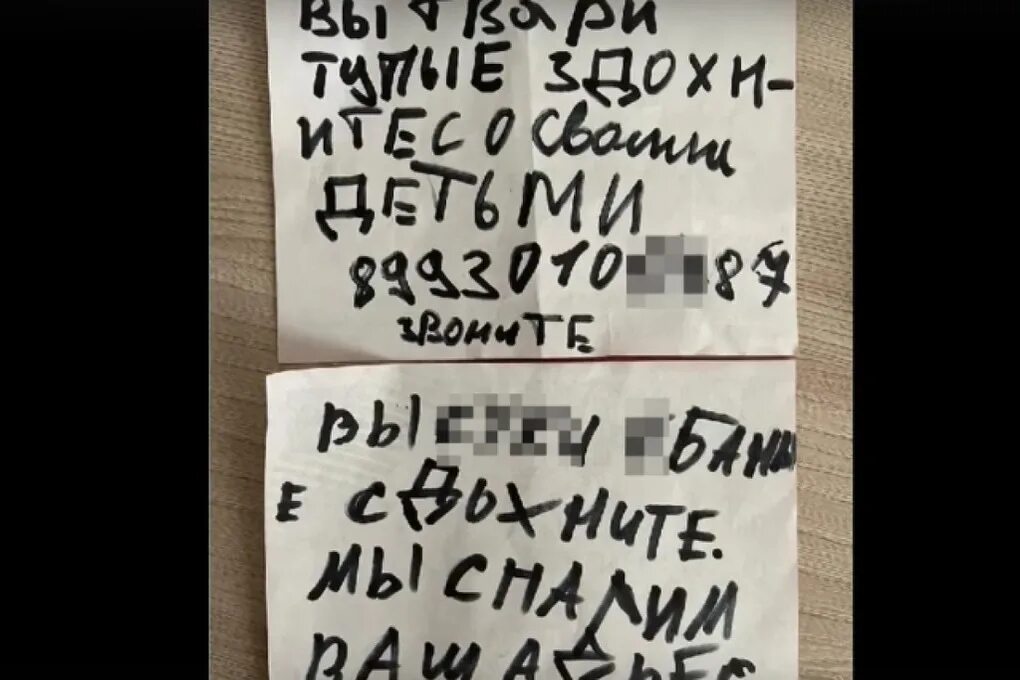 ВЫ ТВАРИ
ТУПЫЕ ЗДОХН-
ИТЕ СО Своими
ДЕТЬМИ
8993010 87
ЗВОНИТЕ
ВЫ БАНЫ
Е СДЫХНИТЕ.
МЫ СПАЛИМ
ВАШ АДРЕС